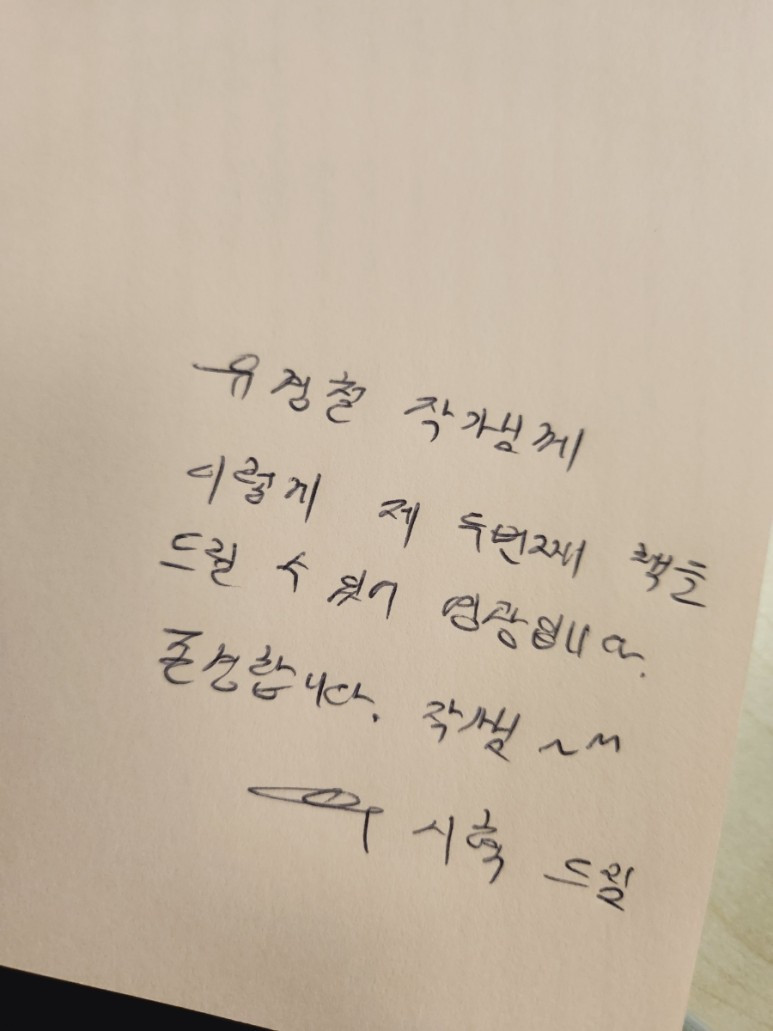 유정철 작가님께
이렇게 제 두번째 책을
드릴 수 있어 영광입니다.
존경합니다. 작가님 ~^^
시혁 드림